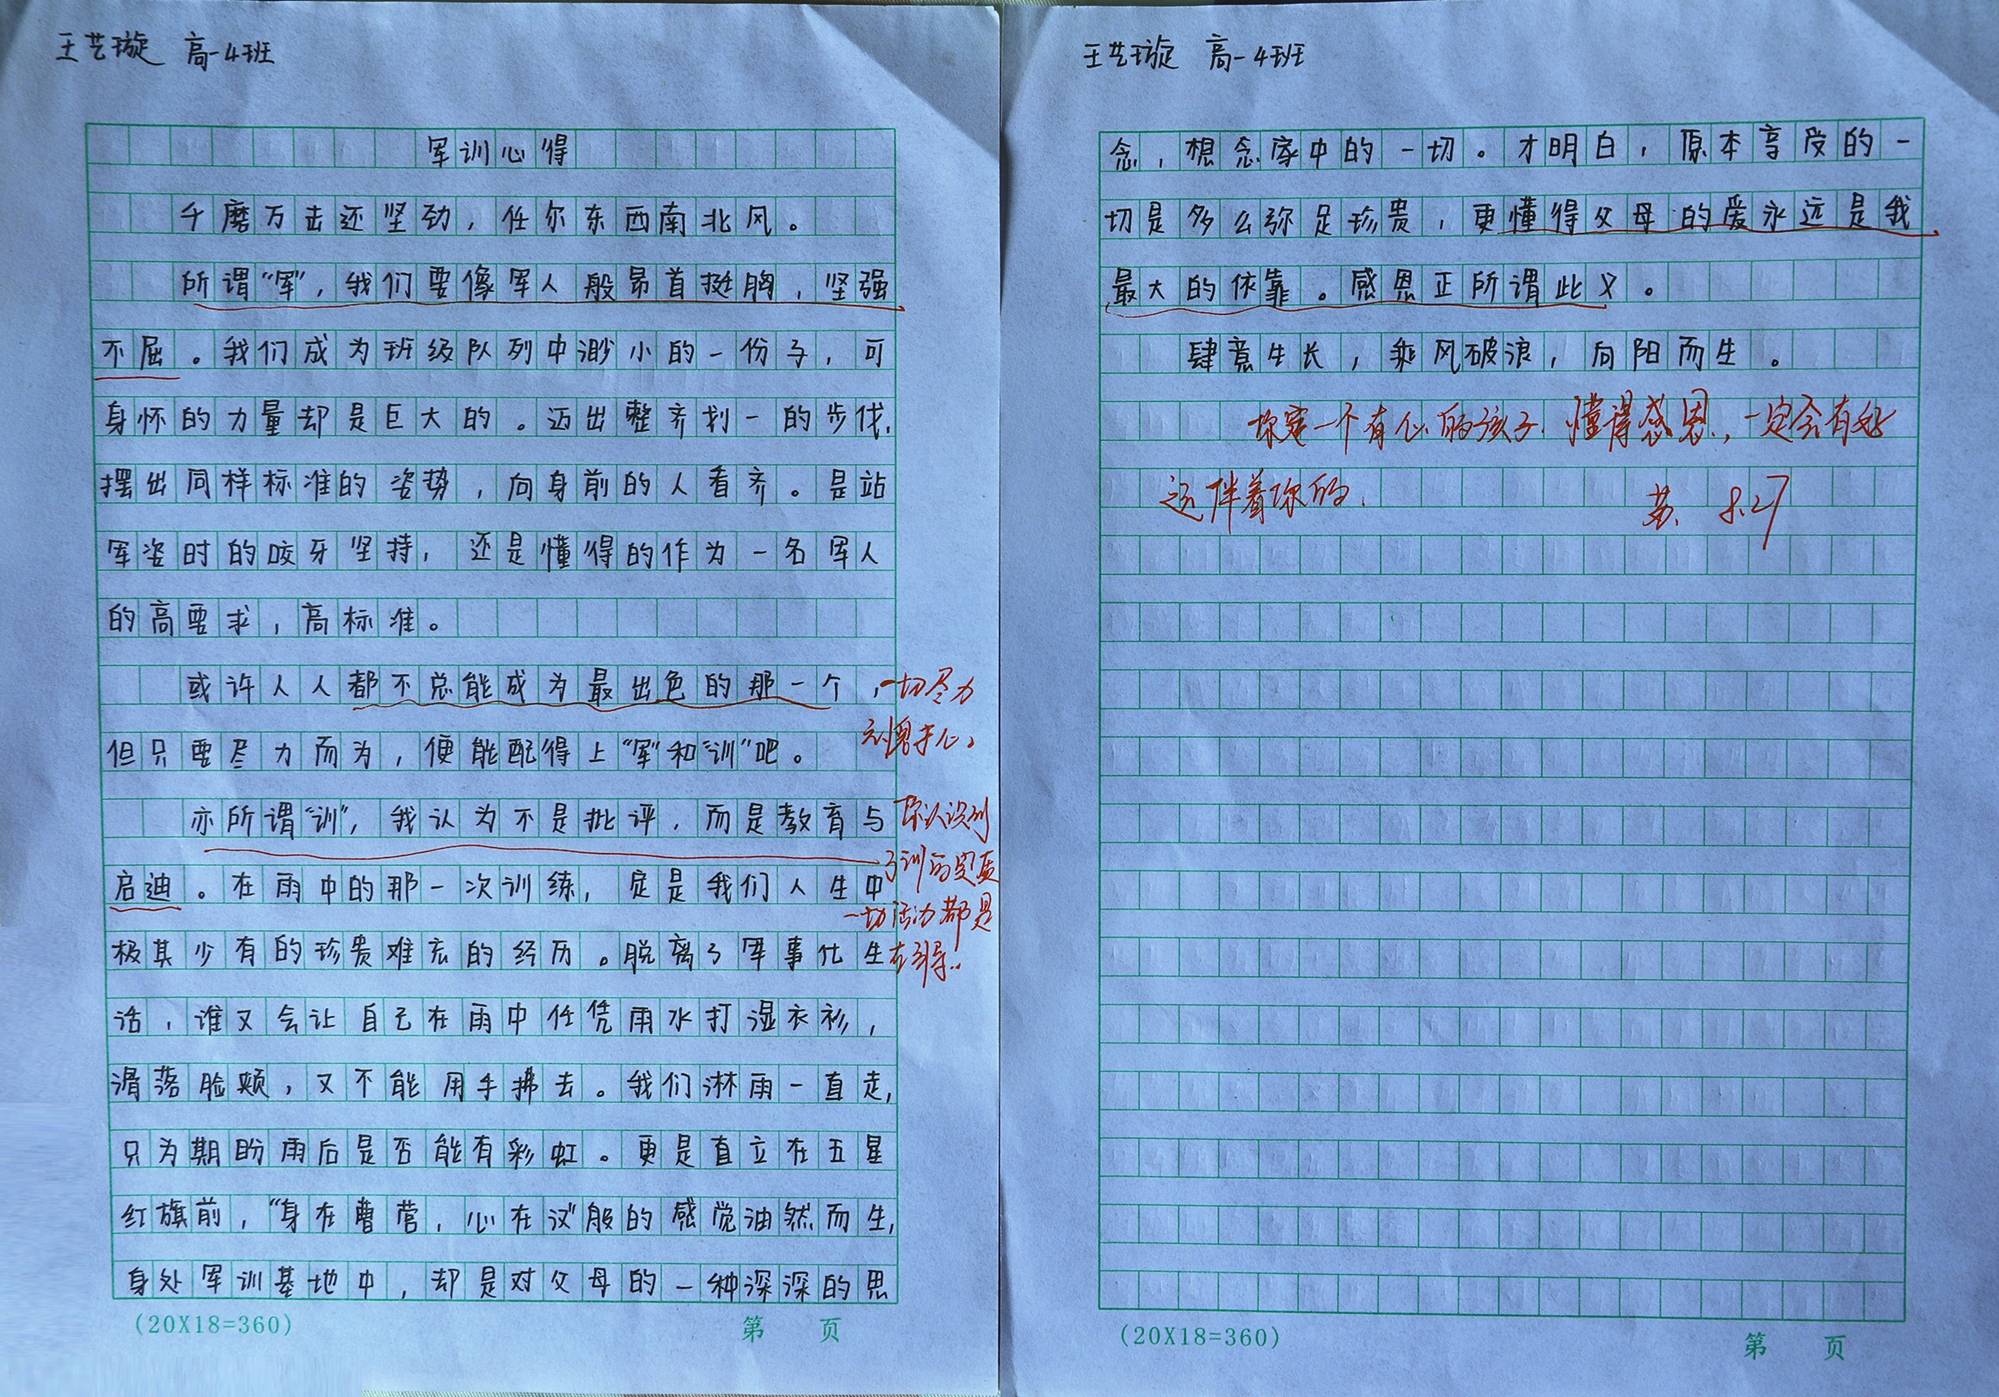 王艺璇 高一4班
军训心得
千磨万击还坚劲，任尔东西南北风。
所谓“军”，我们要像军人般昂首挺胸，坚强
不屈。我们成为班级队列中渺小的一份子，可
身怀的力量却是巨大的。迈出整齐划一的步伐，
摆出同样标准的姿势，向身前的人看齐。是站
军姿时的咬牙坚持，还是懂得的作为一名军人
的高要求，高标准。
或许人人都不总能成为最出色的那一个，
一切尽力
但只要尽力而为，便能配得上“军”和“训”吧。
亦所谓“训”，我认为不是批评，而是教育与
你认识到
了训的定义
启迪。在雨中的那一次训练，定是我们人生中
一切活动都是
极其少有的珍贵难忘的经历。脱离了军事化生
在引导..
活，谁又会让自己在雨中任凭雨水打湿衣衫，
滑落脸颊，又不能用手拂去。我们淋雨一直走，
只为期盼雨后是否能有彩虹。更是直立在五星
红旗前，“身在曹营，心在汉”般的感觉油然而生，
身处军训基地中，却是对父母的一种深深的思
(20X18=360)
第 页
王艺璇 高一4班
念，想念家中的一切。才明白，原本享受的一
切是多么弥足珍贵，更懂得父母的爱永远是我
最大的依靠。感恩正所谓此义。
肆意生长，乘风破浪，向阳而生。
你是一个有心的孩子，懂得感恩，一定会有好
运伴着你的.
苏. 8.27
(20X18=360)
第 页